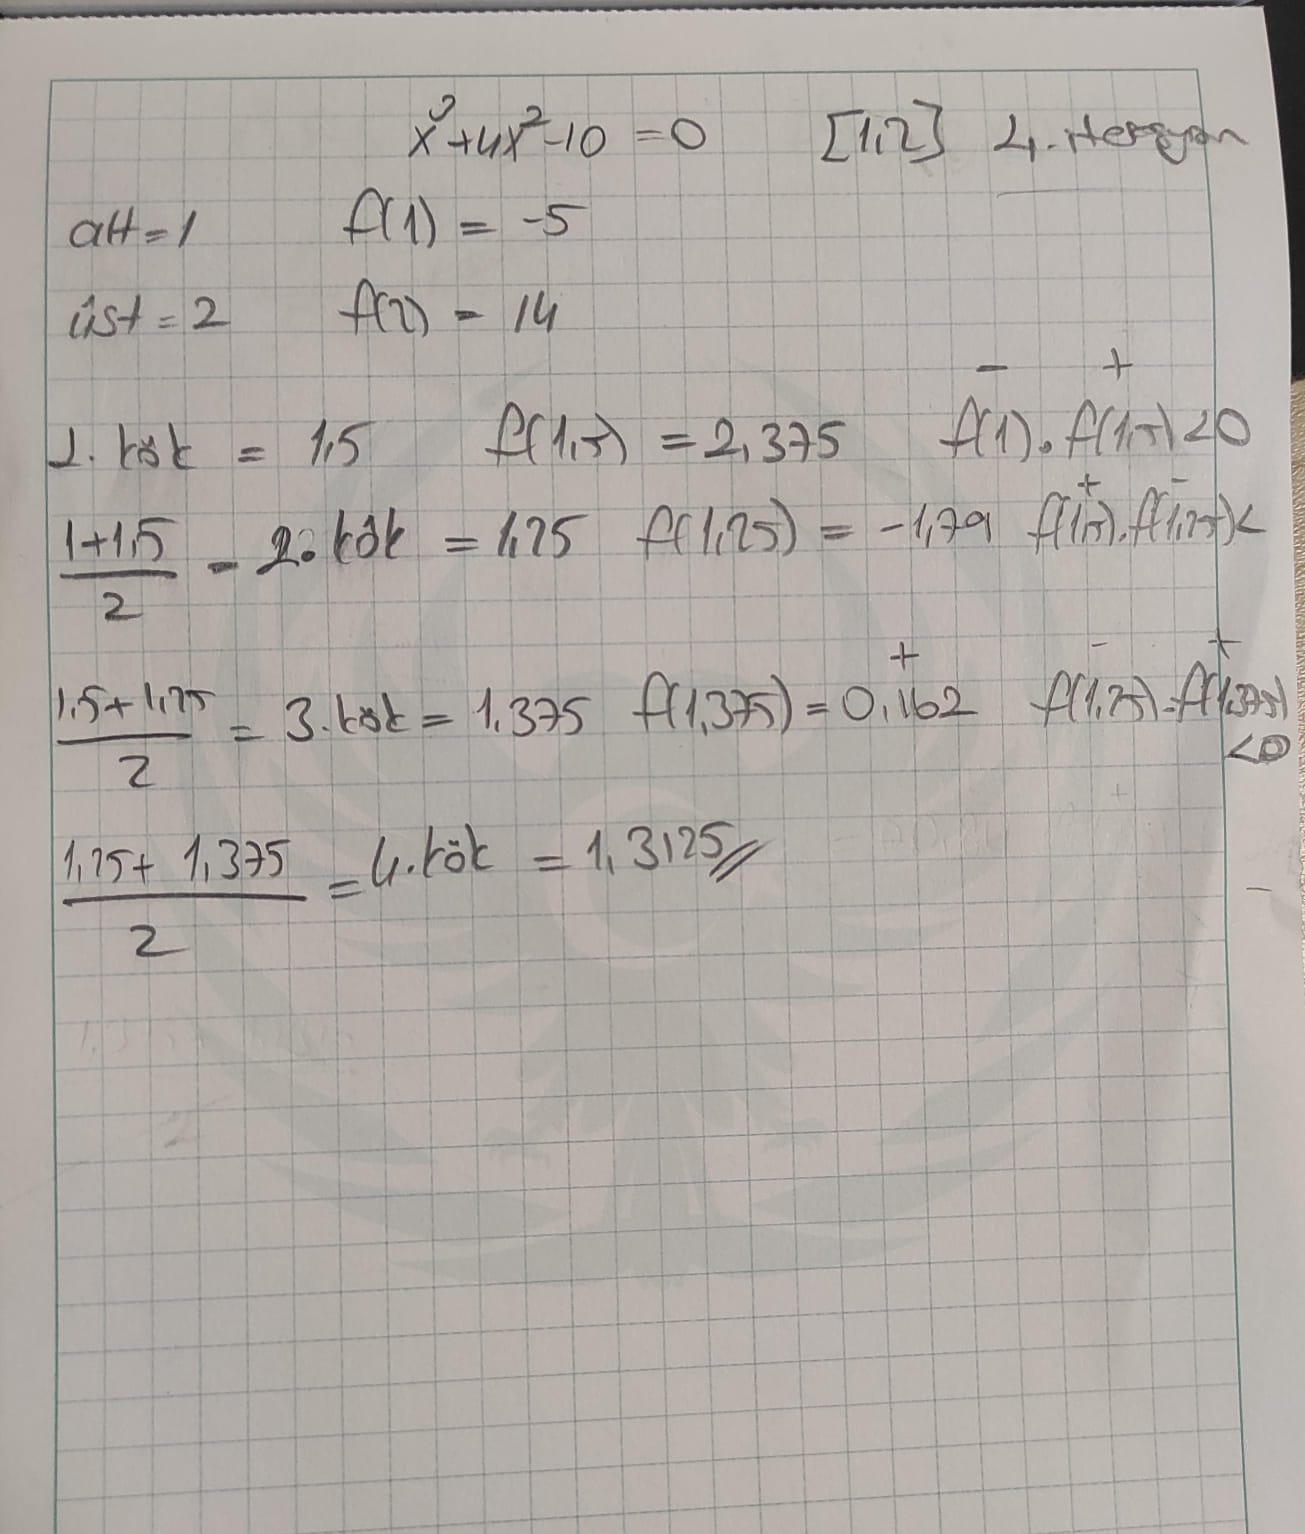 x³+4x²-10=0 [1,2] 4. iterasyon
alt=1 f(1) = -5
üst=2 f(2) = 14
- +
1. kök = 1,5 f(1,5) = 2,375 f(1).f(1,5)<0
+ -
1+1,5/2 = 2. kök = 1,25 f(1,25) = -1,79 f(1,5).f(1,25)<
+ - +
1,5+1,25/2 = 3. kök = 1,375 f(1,375) = 0,162 f(1,25).f(1,375)
<0
1,25+ 1,375/2 = 4. kök = 1,3125